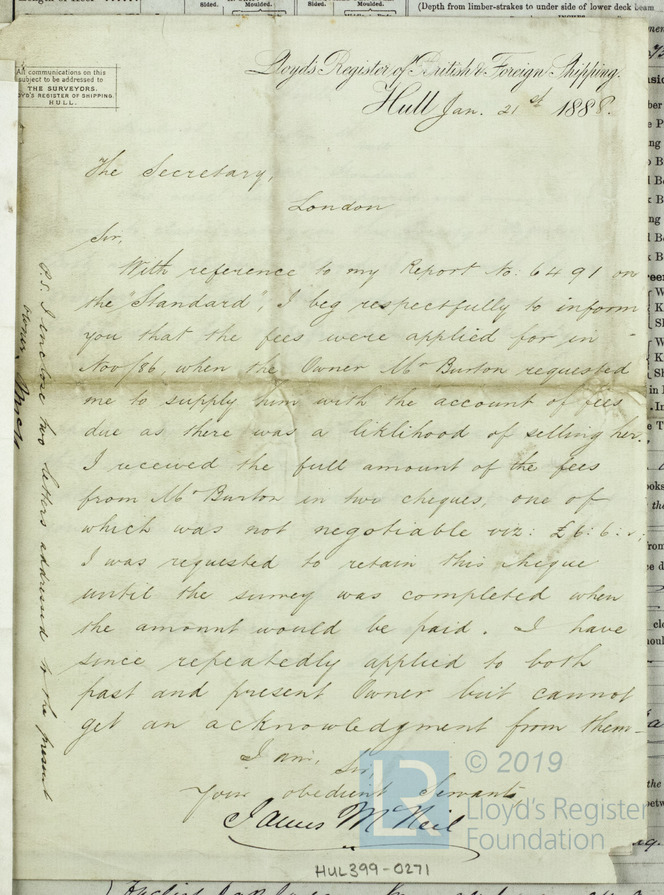 Sided. Moulded. Sided. Moulded.
(Depth from limber-strakes to under side of lower deck beam
All communications on this
subject to be addressed to
THE SURVEYORS,
LLOYD'S REGISTER OF SHIPPING,
HULL.
Lloyd's Register of British & Foreign Shipping.
Hull Jan. 21st 1888.
The Secretary,
London
Sir,
With reference to my Report No: 6491 on
the "Standard", I beg respectfully to inform
you that the fees were applied for in
Nov/86, when the Owner Mr Burton requested
me to supply him with the account of fees
due as there was a liklihood of selling her.
I received the full amount of the fees
from Mr Burton in two cheques, one of
which was not negotiable viz: £6:6:
I was requested to retain this cheque
until the survey was completed when
the amount would be paid. I have
since repeatedly applied to both
past and present Owner but cannot
get an acknowledgment from them-
I am,
Sir,
Your obedient Servant,
James McNeil
P.S. I enclose two letters addressed to the present
owner.
HUL399-0271
LR
© 2019
Lloyd's Register
Foundation